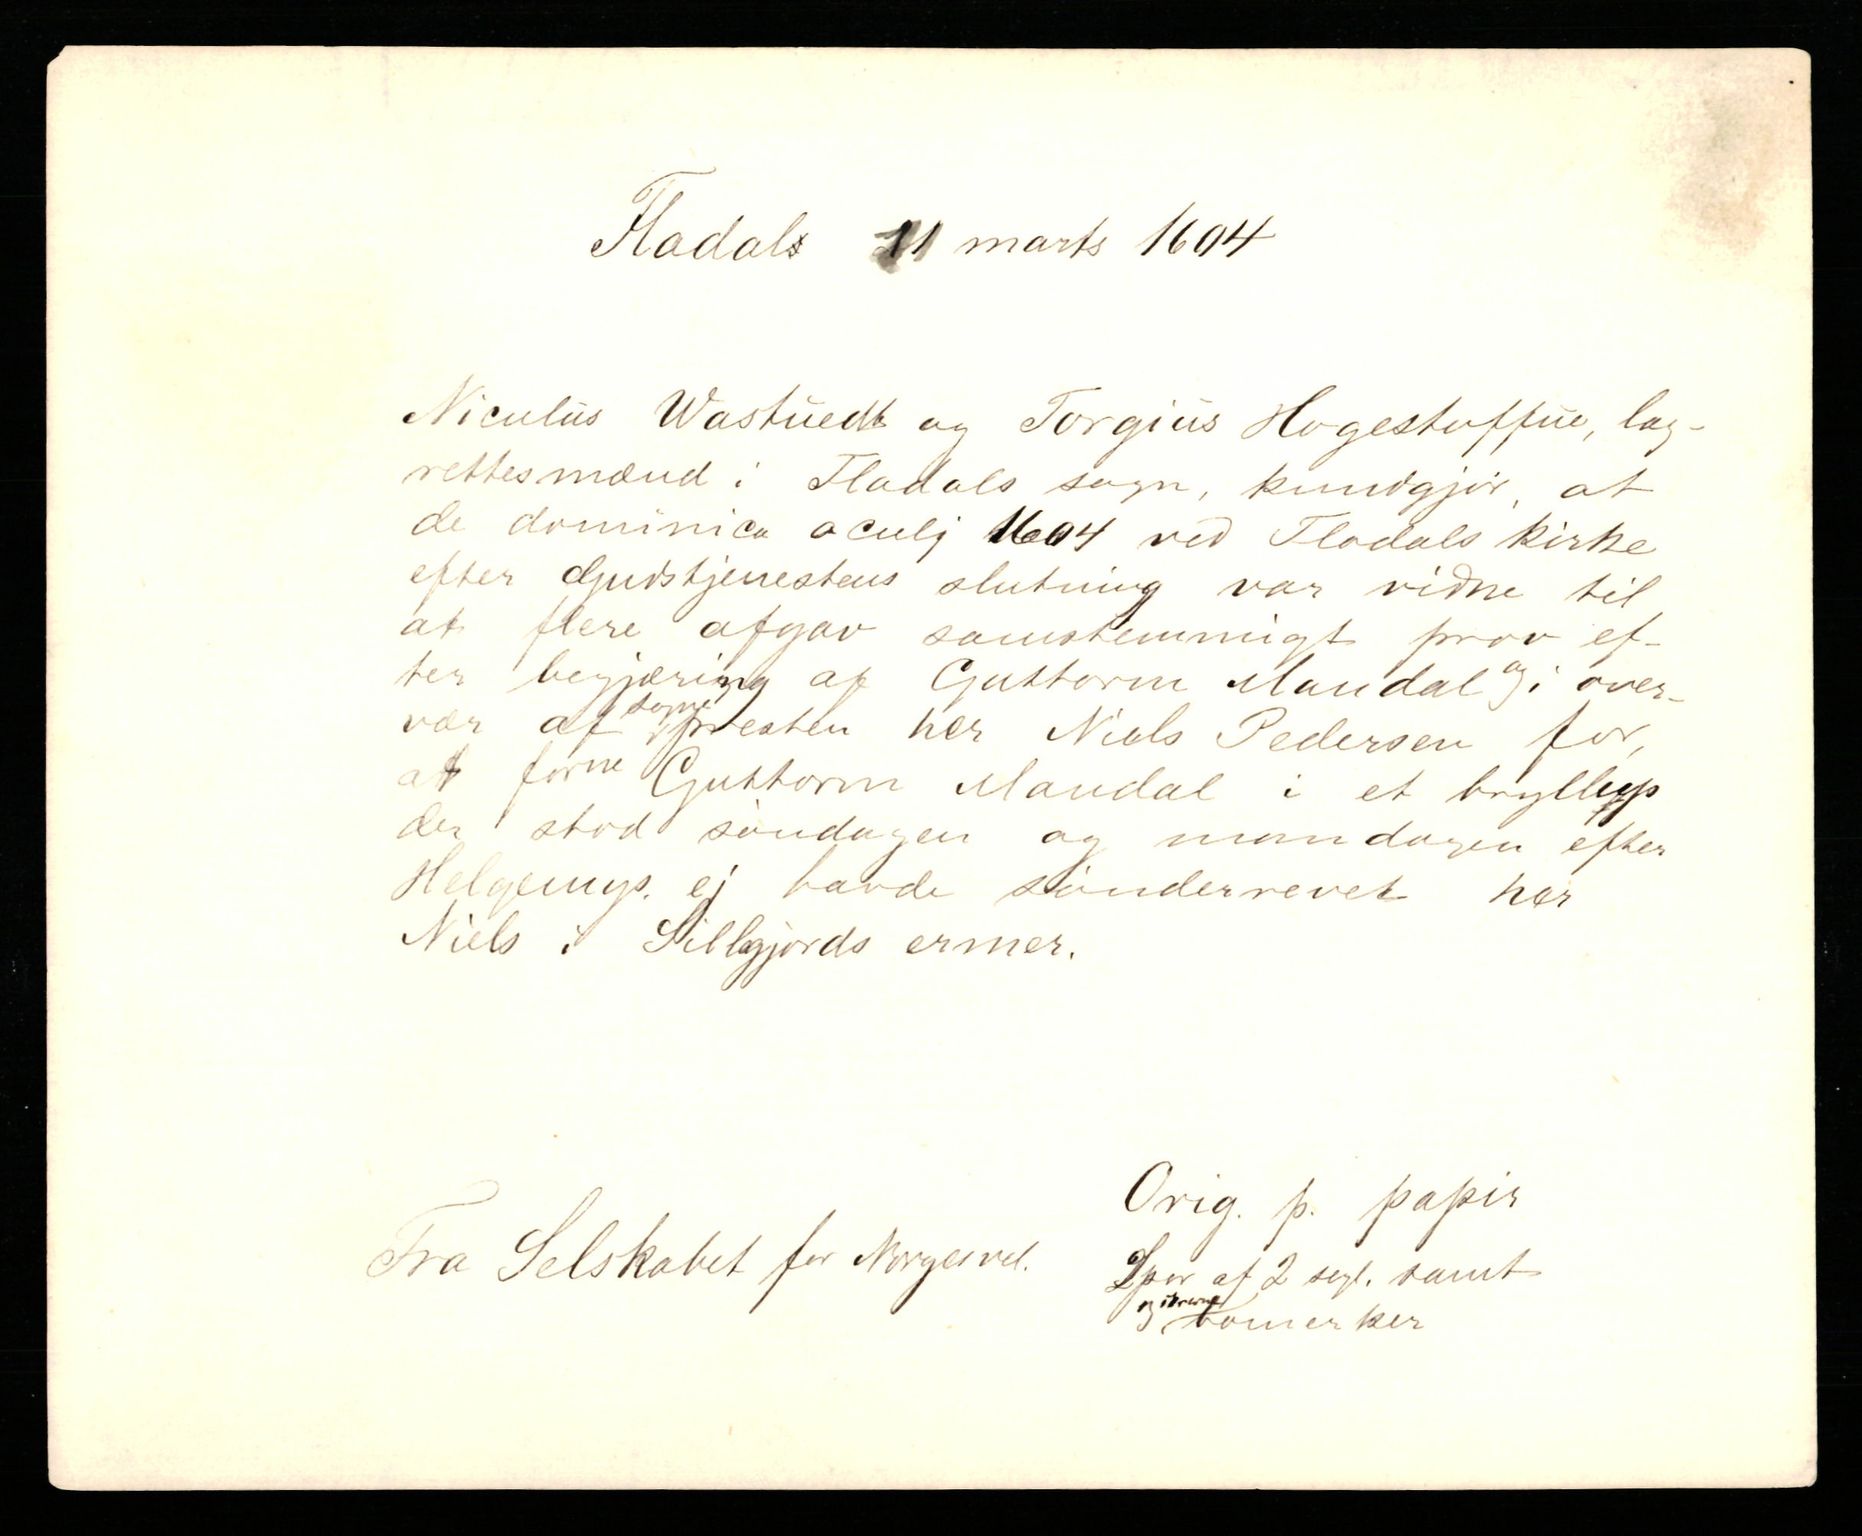 Fladals 11 marts 1604
Niculus Wastuedt og Torgius Hogestuffue, lag-
rettesmænd i Fladals sogn, kundgjör, at
de dominica oculj 1604 ved Fladals kirke
efter gudstjenestens slutning var vidne til
at flere afgav samstemmigt prov ef-
ter begjæring af Guttorm Mandal og i over-
vær af sogne presten her Niels Pedersen for,
at forne Guttorm Mandal i et bryllup
der stod söndagen og mandagen efter
Helgemys. ej havde sönderrevet her
Niels i Sillgjords ermer.
Orig. p. papir
Fra Selskabet for Norges vel.
Spor af 2 segl. samt
bomerker